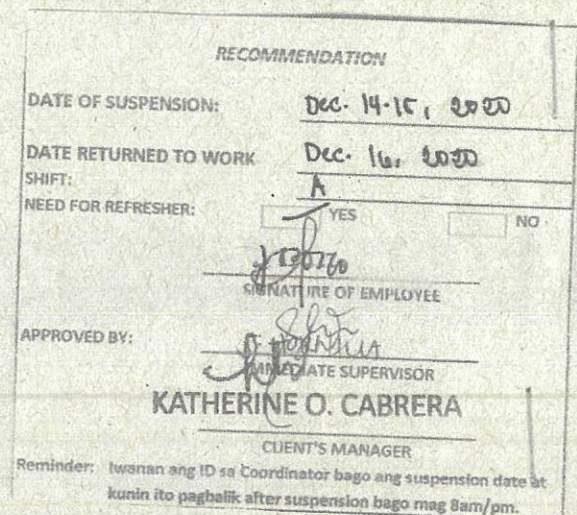 RECOMMENDATION
DATE OF SUSPENSION: Dec. 14-15, 2020
DATE RETURNED TO WORK Dec. 16, 2020
SHIFT: A
NEED FOR REFRESHER: YES NO
SIGNATURE OF EMPLOYEE
APPROVED BY:
IMMEDIATE SUPERVISOR
KATHERINE O. CABRERA
CLIENT'S MANAGER
Reminder: Iwanan ang ID sa Coordinator bago ang suspension date at
kunin ito pagbalik after suspension bago mag 8am/pm.